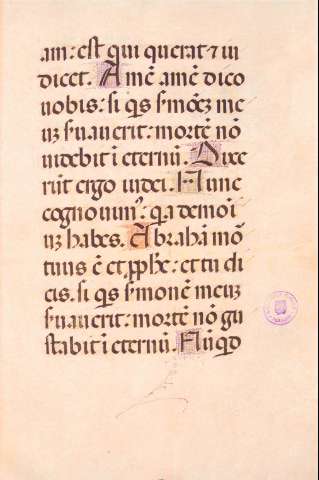 am: est qui querat ⁊ iu
dicet. Amē amē dico
uobis: si q̄s s̄monēz me
uz s̄uauerit: mortē nō
uidebit ī eternū. Dixe
rūt ergo iudei. Nunc
cognouimꝰ: qa demōi
uz habes. Abrahā mo᷑
tuus ē et ꝓph̄e: et tu di
cis. si q̄s s̄monē meuz
s̄uauerit: mortē nō gu
stabit ī eternū. Nūqd